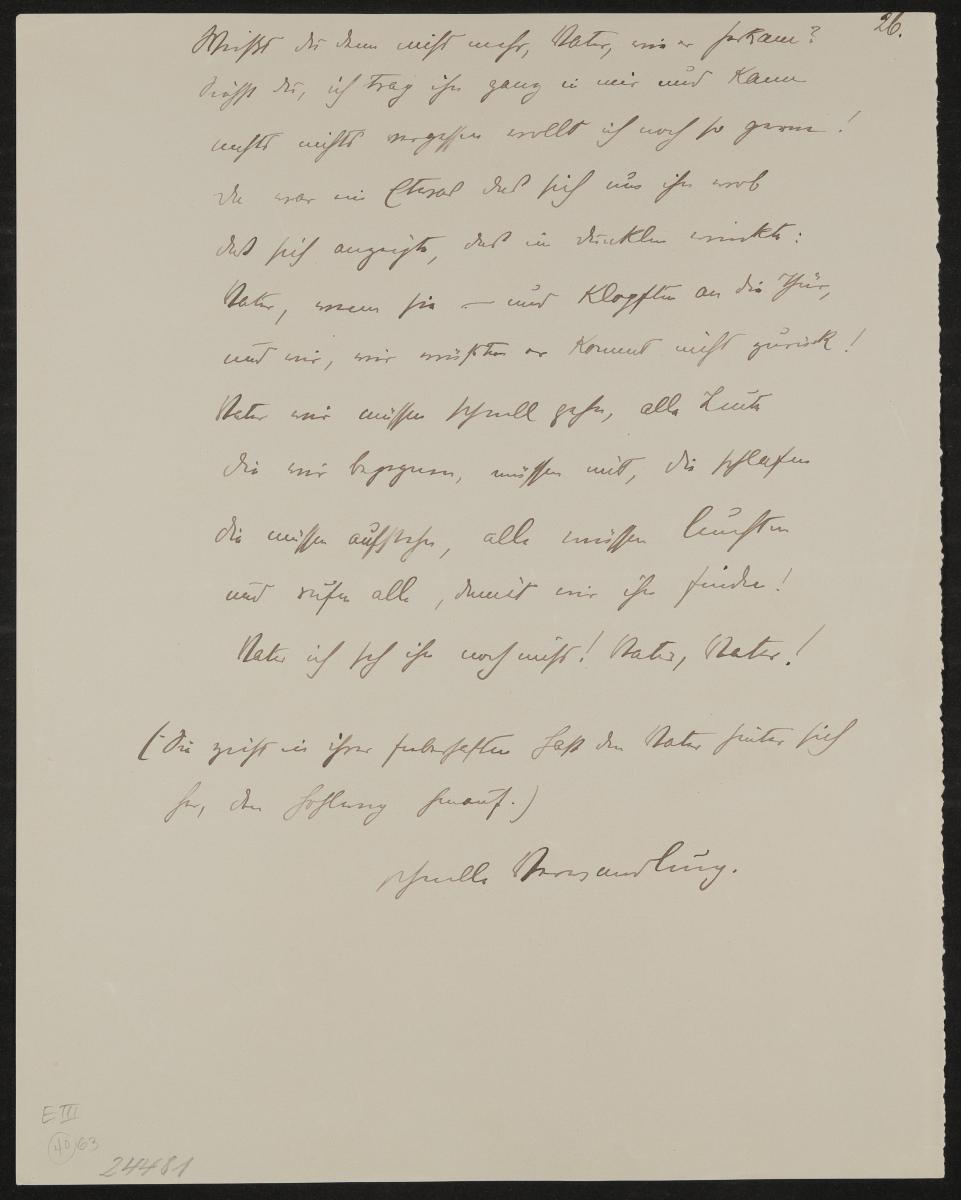 26.
Weißt du denn nicht mehr, Vater, wie er herkam?
Siehst du, ich trag ihn ganz in mir und kann
nichts nichts vergessen wollt ich noch so gerne!
Da war ein Etwas das sich um ihn wob
das sich anzeigte, das im dunklen winkte:
Vater, wenn sie — und klopften an die Thür,
und wir, wir wüßten er kommt nicht zurück!
Vater wir müssen schnell gehn, alle Leute
die wir begegnen, müssen mit, die schlafen
die müssen aufstehn, alle müssen leuchten
und rufen alle, damit wir ihn finden!
Vater ich seh ihn noch nicht! Vater, Vater!
(Sie zieht in ihrer fieberhaften Hast den Vater hinter sich
her, den Hohlweg hinauf.)
schnelle Verwandlung.
E III
40 63
24481